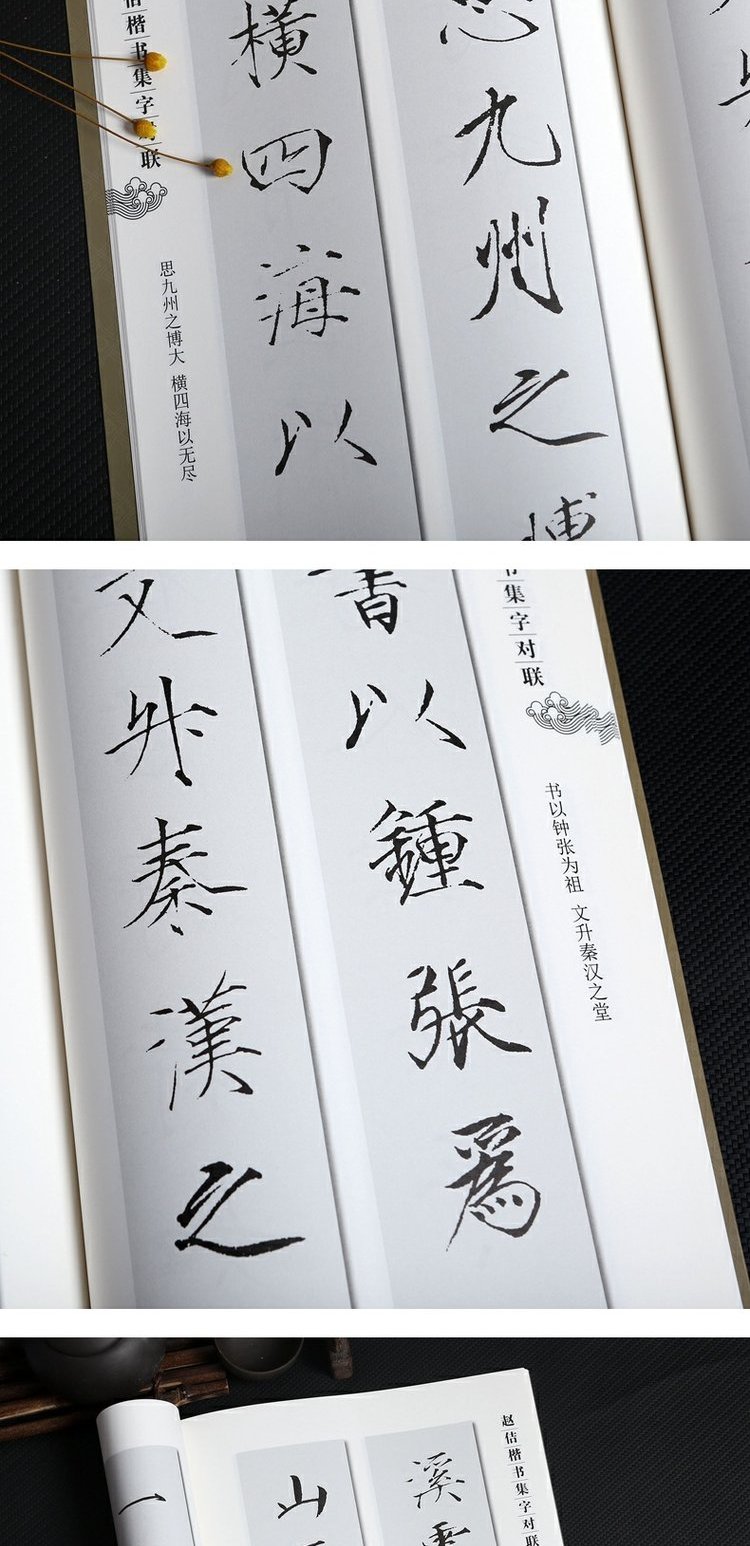 佶楷书集字对联
思九州之博
横四海以
思九州之博大 横四海以无尽
书集字对联
書以鍾張爲
文升秦漢之
书以钟张为祖 文升秦汉之堂
赵佶楷书集字对联
溪
山
一